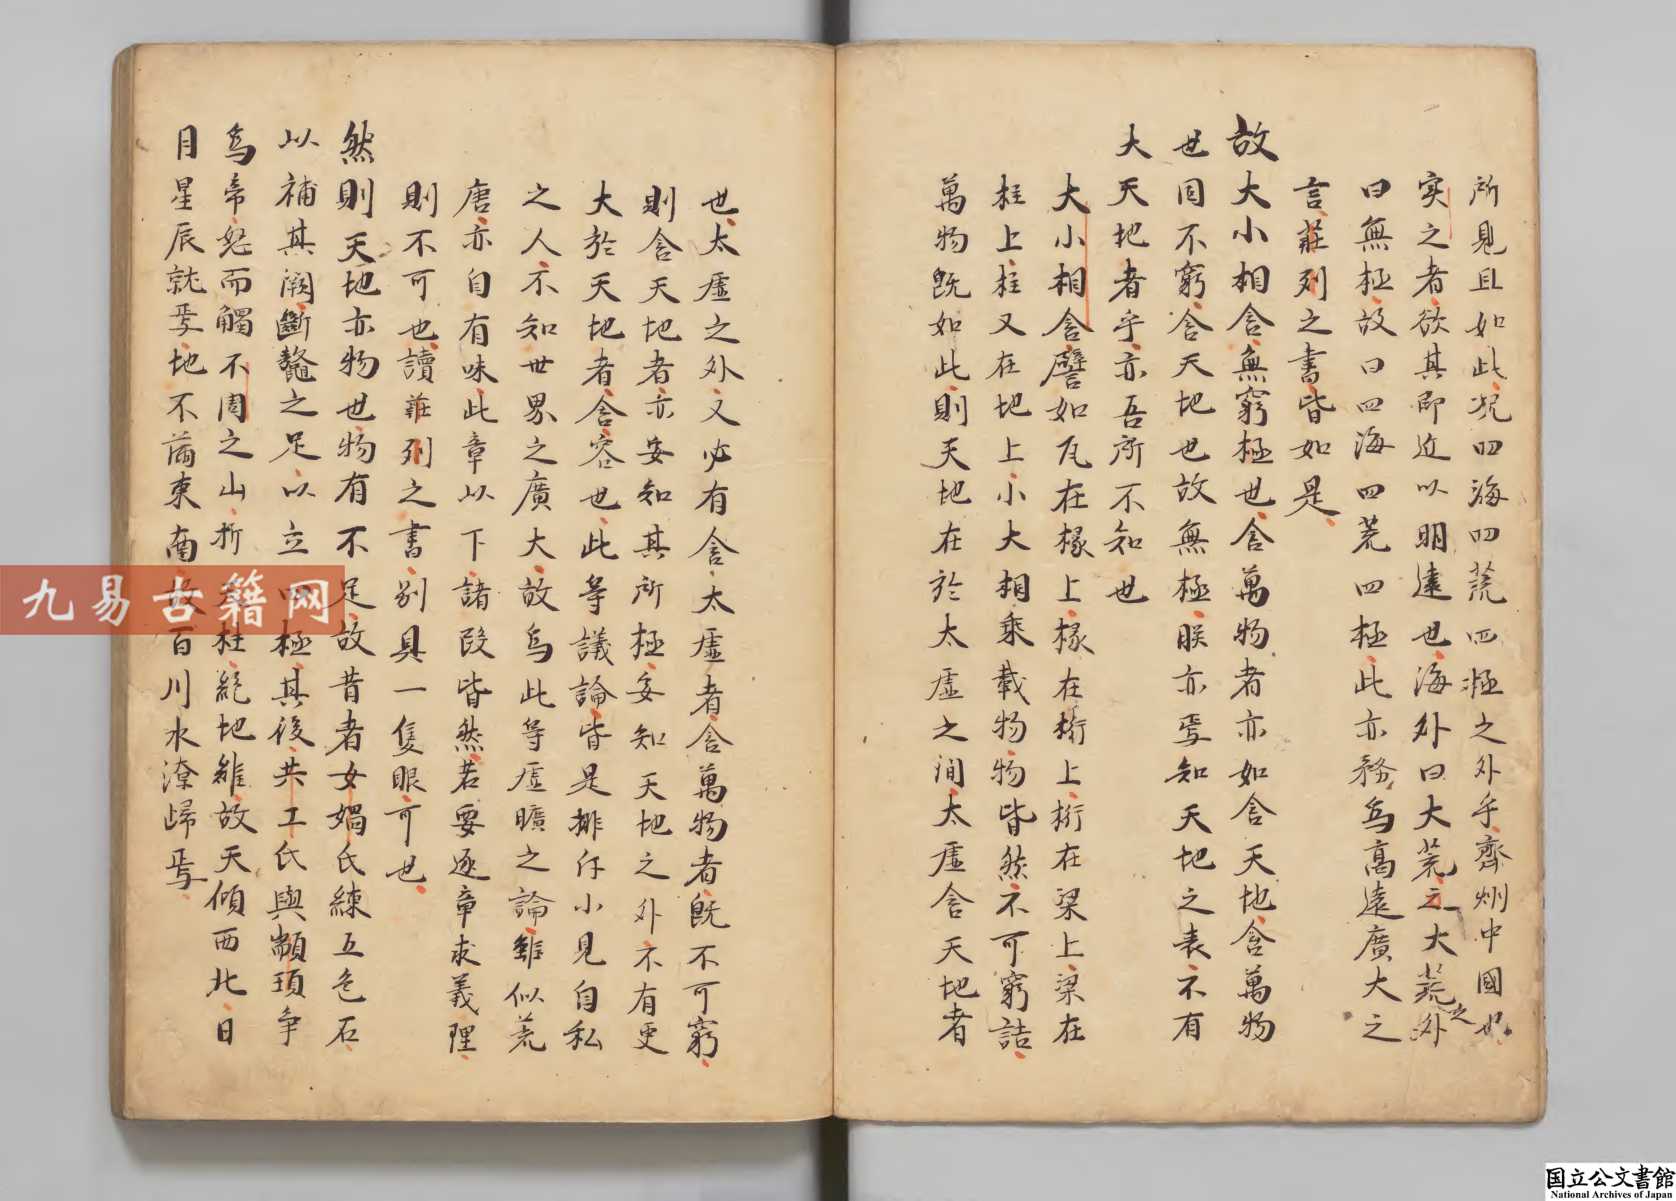 所見且如此況四海四荒四極之外乎齊州中國也
実之者欲其即近以明遠也海外曰大荒之大荒之外
曰無極故曰四海四荒四極此亦務為高遠廣大之
言莊列之書皆如是
故大小相含無窮極也含萬物者亦如含天地含萬物
也固不窮含天地也故無極朕亦焉知天地之表不有
大天地者乎亦吾所不知也
大小相含譬如瓦在椽上椽在桁上桁在梁上梁在
柱上柱又在地上小大相乘載物物皆然不可窮詰
萬物既如此則天地在於太虛之間太虛含天地者
也太虛之外又必有含太虛者含萬物者既不可窮
則含天地者亦安知其所極安知天地之外不有更
大於天地者含容也此等議論皆是排斥小見自私
之人不知世界之廣大故為此等虛曠之論雖似荒
唐亦自有味此章以下諸段皆然若要逐章求義理
則不可也讀莊列之書別具一隻眼可也
然則天地亦物也物有不足故昔者女媧氏練五色石
以補其闕斷鼇之足以立四極其後共工氏與顓頊争
為帝怒而觸不周之山折柱絕地維故天傾西北日
月星辰就焉地不滿東南故百川水潦歸焉
九易古籍网
国立公文書館
National Archives of Japan